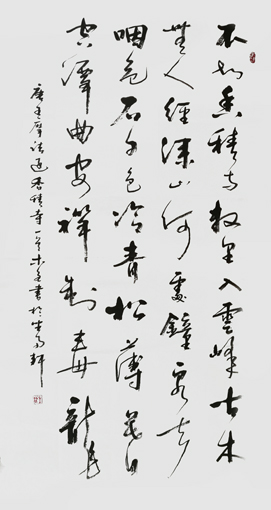 不知香積寺數里入雲峰古木
無人徑深山何處鐘泉聲
咽危石日色冷青松薄暮
空潭曲安禪制毒龍
唐王摩詰過香積寺一首 書於 軒